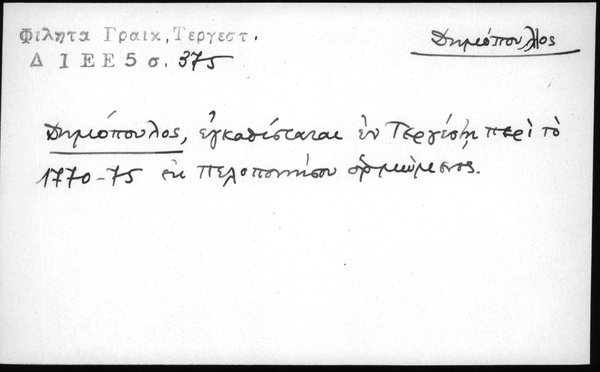 Φιλητα Γραικ, Τεργεστ.
Δημόπουλος
Δ Ι Ε Ε 5 σ. 375
Δημόπουλος, ἐγκαθίσταται ἐν Τεργέστῃ περὶ τὸ
1770-75 ἐκ Πελοποννήσου ὁρμώμενος.